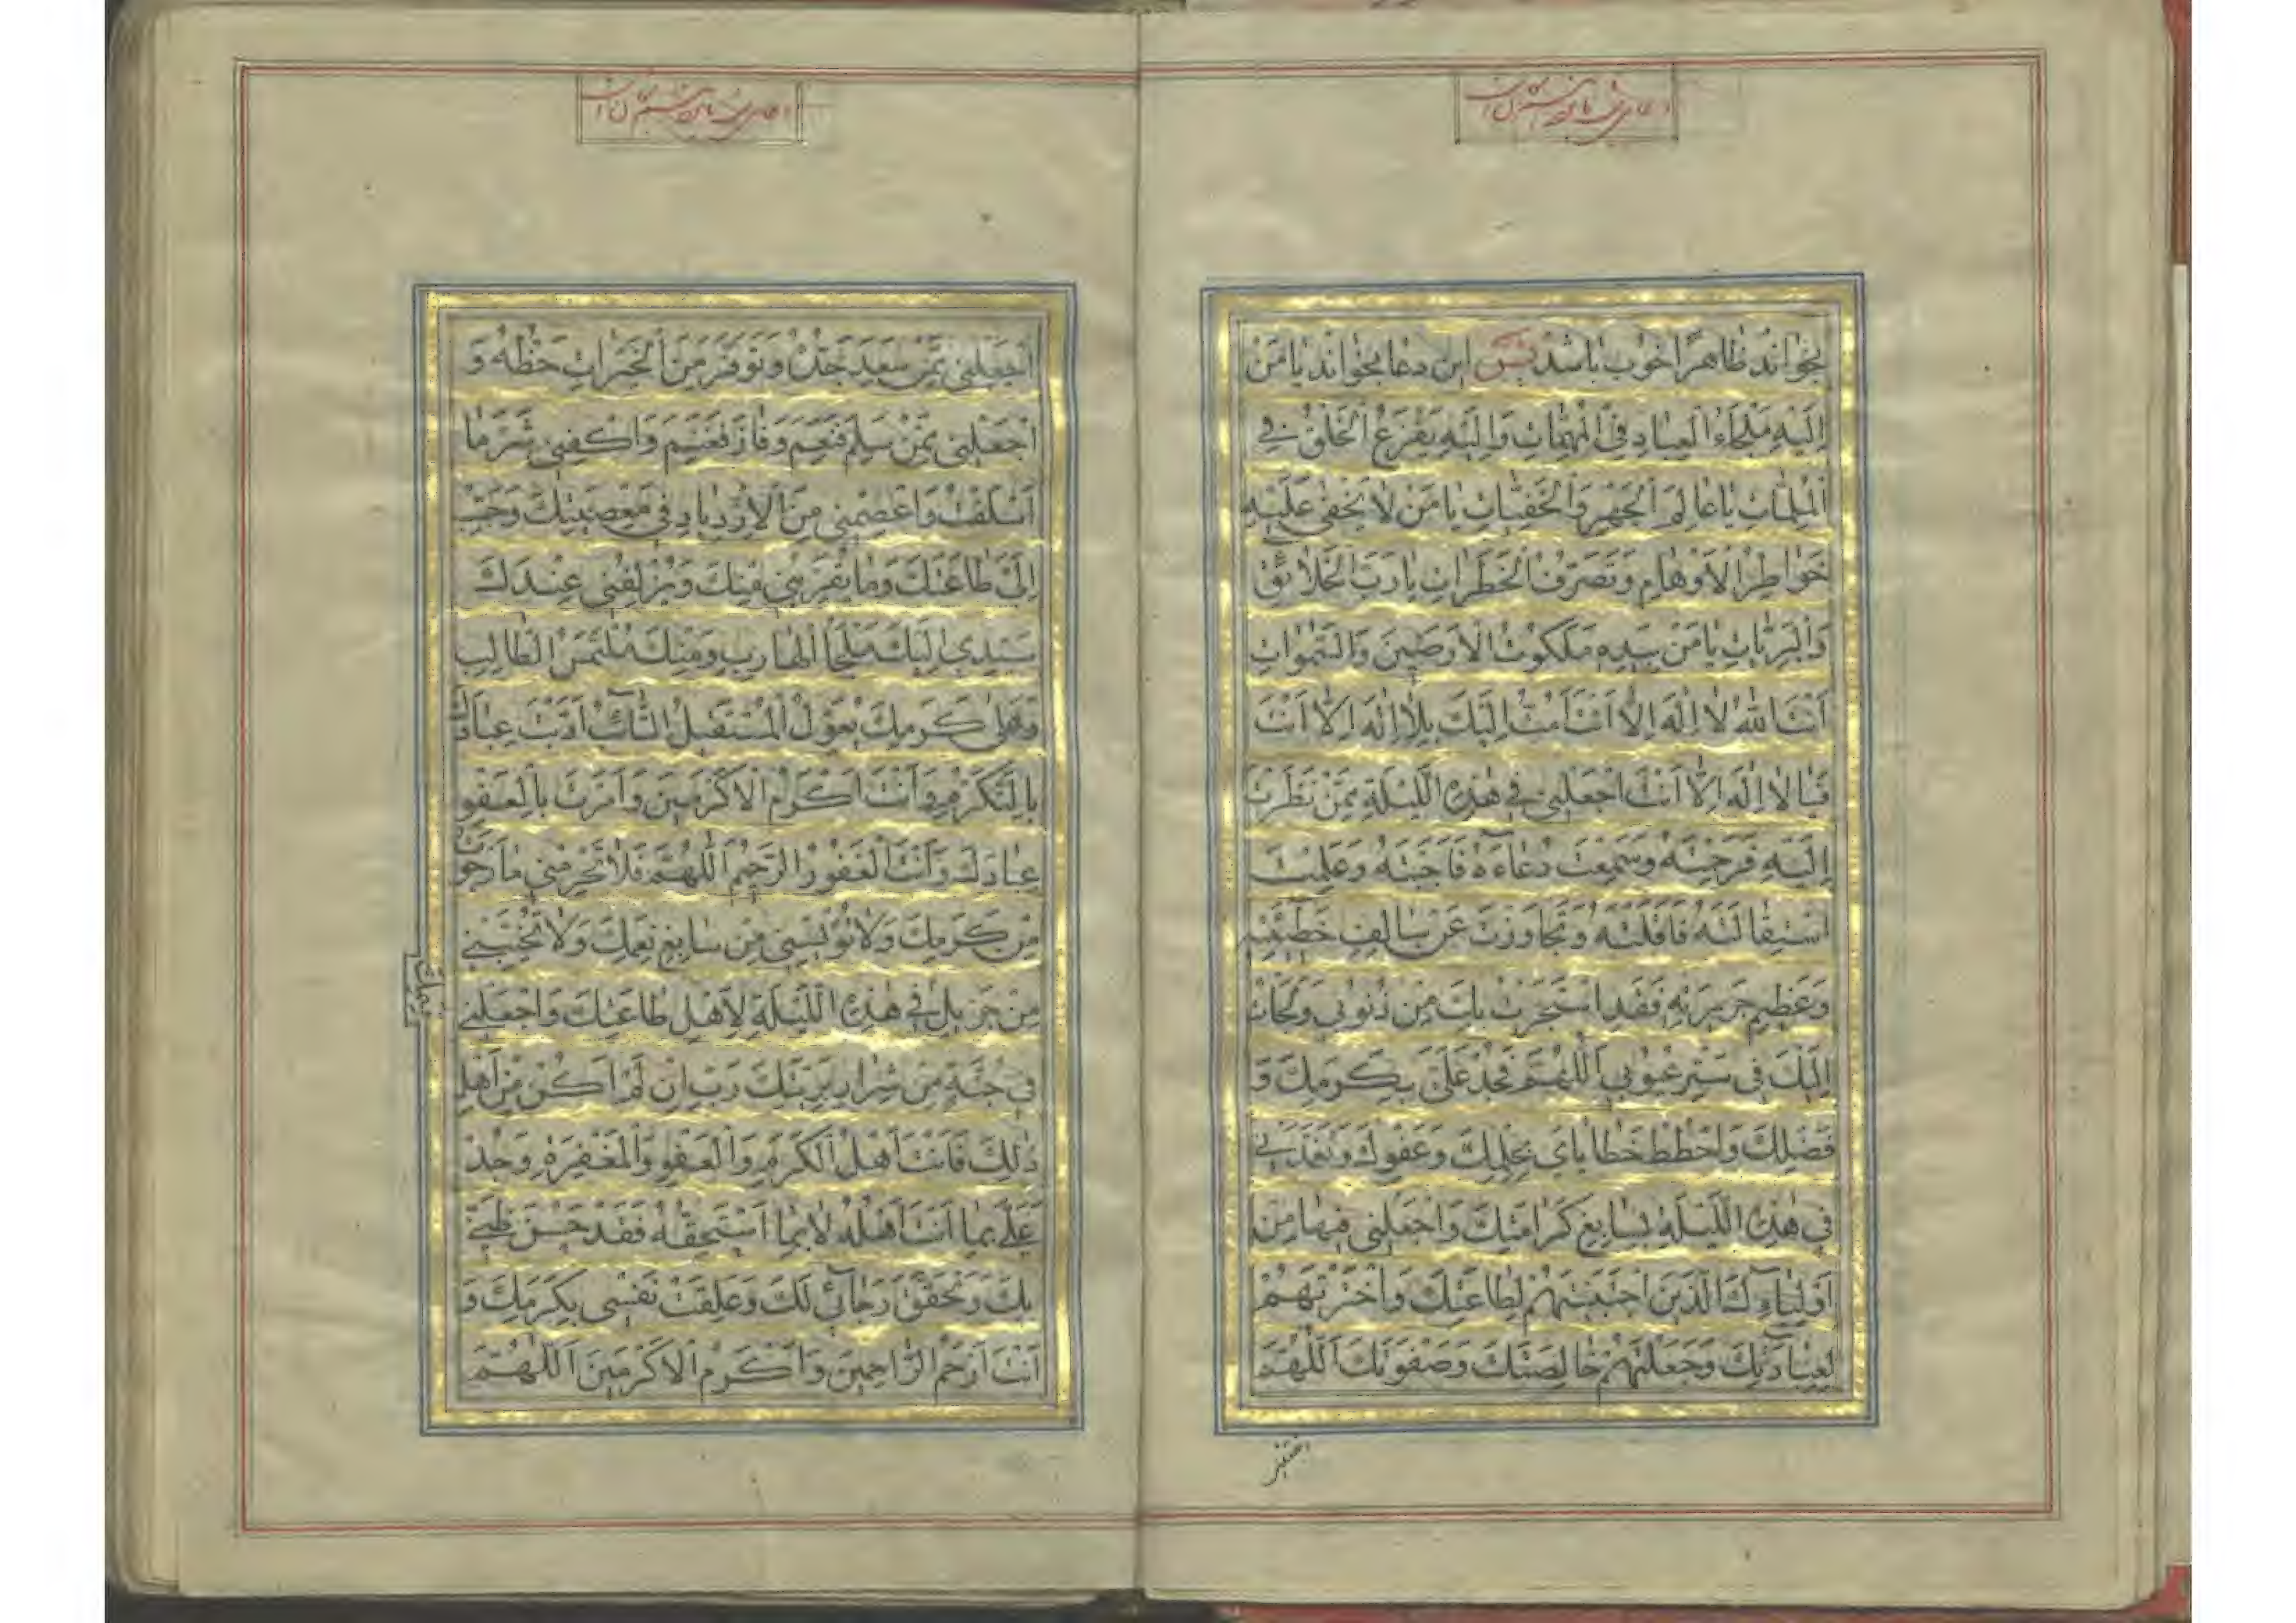 بخواند ظاهرًا خوب باشد پس این دعا بخواند یا مَنْ
اِلَیْهِ مَلْجَاءُ الْعِبادِ فِی الْمُهِمّاتِ وَاِلَیْهِ یَفْزَعُ الْخَلْقُ فِی
الْمُلِمّاتِ یا عالِمَ الْجَهْرِ وَالْخَفِیّاتِ یا مَنْ لا یَخْفی عَلَیْهِ
خَواطِرُ الْاَوْهامِ وَتَصَرُّفُ الْخَطَراتِ یا رَبَّ الْخَلائِقِ
وَالْبَرِیّاتِ یا مَنْ بِیَدِهِ مَلَکُوتُ الْاَرَضینَ وَالسَّمواتِ
اَنْتَ اللهُ لا اِلهَ اِلّا اَنْتَ اَمُتُّ اِلَیْکَ بِلا اِلهَ اِلّا اَنْتَ
فَیا لا اِلهَ اِلّا اَنْتَ اجْعَلْنی فی هذِهِ اللَّیْلَةِ مِمَّنْ نَظَرْتَ
اِلَیْهِ فَرَحِمْتَهُ وَسَمِعْتَ دُعاءَهُ فَاَجَبْتَهُ وَعَلِمْتَ
اسْتِقالَتَهُ فَاَقَلْتَهُ وَتَجاوَزْتَ عَنْ سالِفِ خَطیئَتِهِ
وَعَظیمِ جَریرَتِهِ فَقَدِ اسْتَجَرْتُ بِکَ مِنْ ذُنُوبی وَلَجَأْتُ
اِلَیْکَ فی سَتْرِ عُیُوبی اَللّهُمَّ فَجُدْ عَلَیَّ بِکَرَمِکَ وَ
فَضْلِکَ وَاحْطُطْ خَطایایَ بِحِلْمِکَ وَعَفْوِکَ وَتَغَمَّدْنی
فی هذِهِ اللَّیْلَةِ بِسابِغِ کَرامَتِکَ وَاجْعَلْنی فیها مِنْ
اَوْلِیائِکَ الَّذینَ اجْتَبَیْتَهُمْ لِطاعَتِکَ وَاخْتَرْتَهُمْ
لِعِبادَتِکَ وَجَعَلْتَهُمْ خالِصَتَکَ وَصَفْوَتَکَ اَللّهُمَّ
اجْعَلْنی مِمَّنْ سَعِدَ جَدُّهُ وَتَوَفَّرَ مِنَ الْخَیْراتِ حَظُّهُ وَ
اجْعَلْنی مِمَّنْ سَلِمَ فَنَعِمَ وَفازَ فَغَنِمَ وَاکْفِنی شَرَّ ما
اَسْلَفْتُ وَاعْصِمْنی مِنَ الْاِزْدِیادِ فی مَعْصِیَتِکَ وَحَبِّبْ
اِلَیَّ طاعَتَکَ وَما یُقَرِّبُنی مِنْکَ وَیُزْلِفُنی عِنْدَکَ
سَیِّدی اِلَیْکَ مَلْجَأُ الْهارِبِ وَمِنْکَ مُلْتَمَسُ الطّالِبِ
وَعَلی کَرَمِکَ یُعَوِّلُ الْمُسْتَقیلُ التّائِبُ اَدَّبْتَ عِبادَکَ
بِالتَّکَرُّمِ وَاَنْتَ اَکْرَمُ الْاَکْرَمینَ وَاَمَرْتَ بِالْعَفْوِ
عِبادَکَ وَاَنْتَ الْغَفُورُ الرَّحیمُ اَللّهُمَّ فَلا تَحْرِمْنی ما رَجَوْتُ
مِنْ کَرَمِکَ وَلا تُؤْیِسْنی مِنْ سابِغِ نِعَمِکَ وَلا تُخَیِّبْنی
مِنْ جَزیلِ فی هذِهِ اللَّیْلَةِ لِاَهْلِ طاعَتِکَ وَاجْعَلْنی
فی جُنَّةٍ مِنْ شِرارِ بَرِیَّتِکَ رَبِّ اِنْ لَمْ اَکُنْ مِنْ اَهْلِ
ذلِکَ فَاَنْتَ اَهْلُ الْکَرَمِ وَالْعَفْوِ وَالْمَغْفِرَةِ وَجُدْ
عَلَیَّ بِما اَنْتَ اَهْلُهُ لا بِما اَسْتَحِقُّهُ فَقَدْ حَسُنَ ظَنّی
بِکَ وَتَحَقَّقَ رَجائی لَکَ وَعَلِقَتْ نَفْسی بِکَرَمِکَ وَ
اَنْتَ اَرْحَمُ الرّاحِمینَ وَاَکْرَمُ الْاَکْرَمینَ اَللّهُمَّ